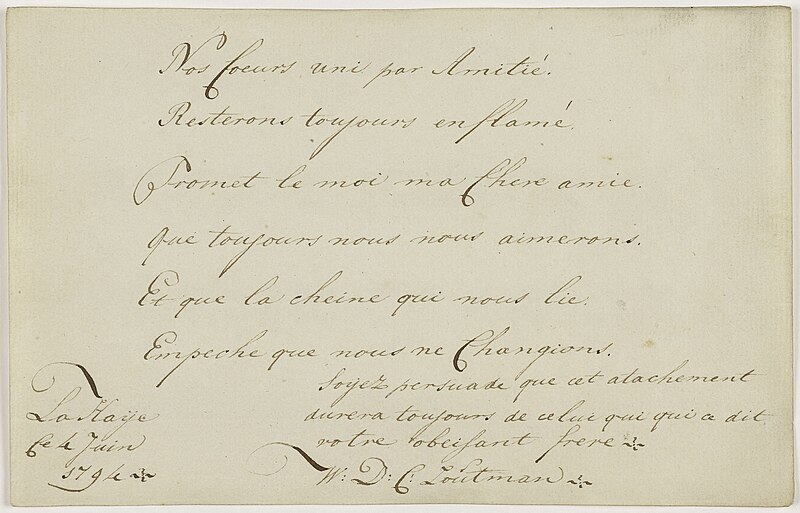 Nos Coeurs uni par Amitié.
Resterons toujours enflamé.
Promet le moi ma Chere amie.
que toujours nous nous aimerons.
Et que la cheine qui nous lie.
Empeche que nous ne Changions.
Soyez persuade que cet atachement
durera toujours de celui qui qui ce dit
votre obeisant frere
W: D: C: Zoutman
La Haije
Ce 4 Juin
1794